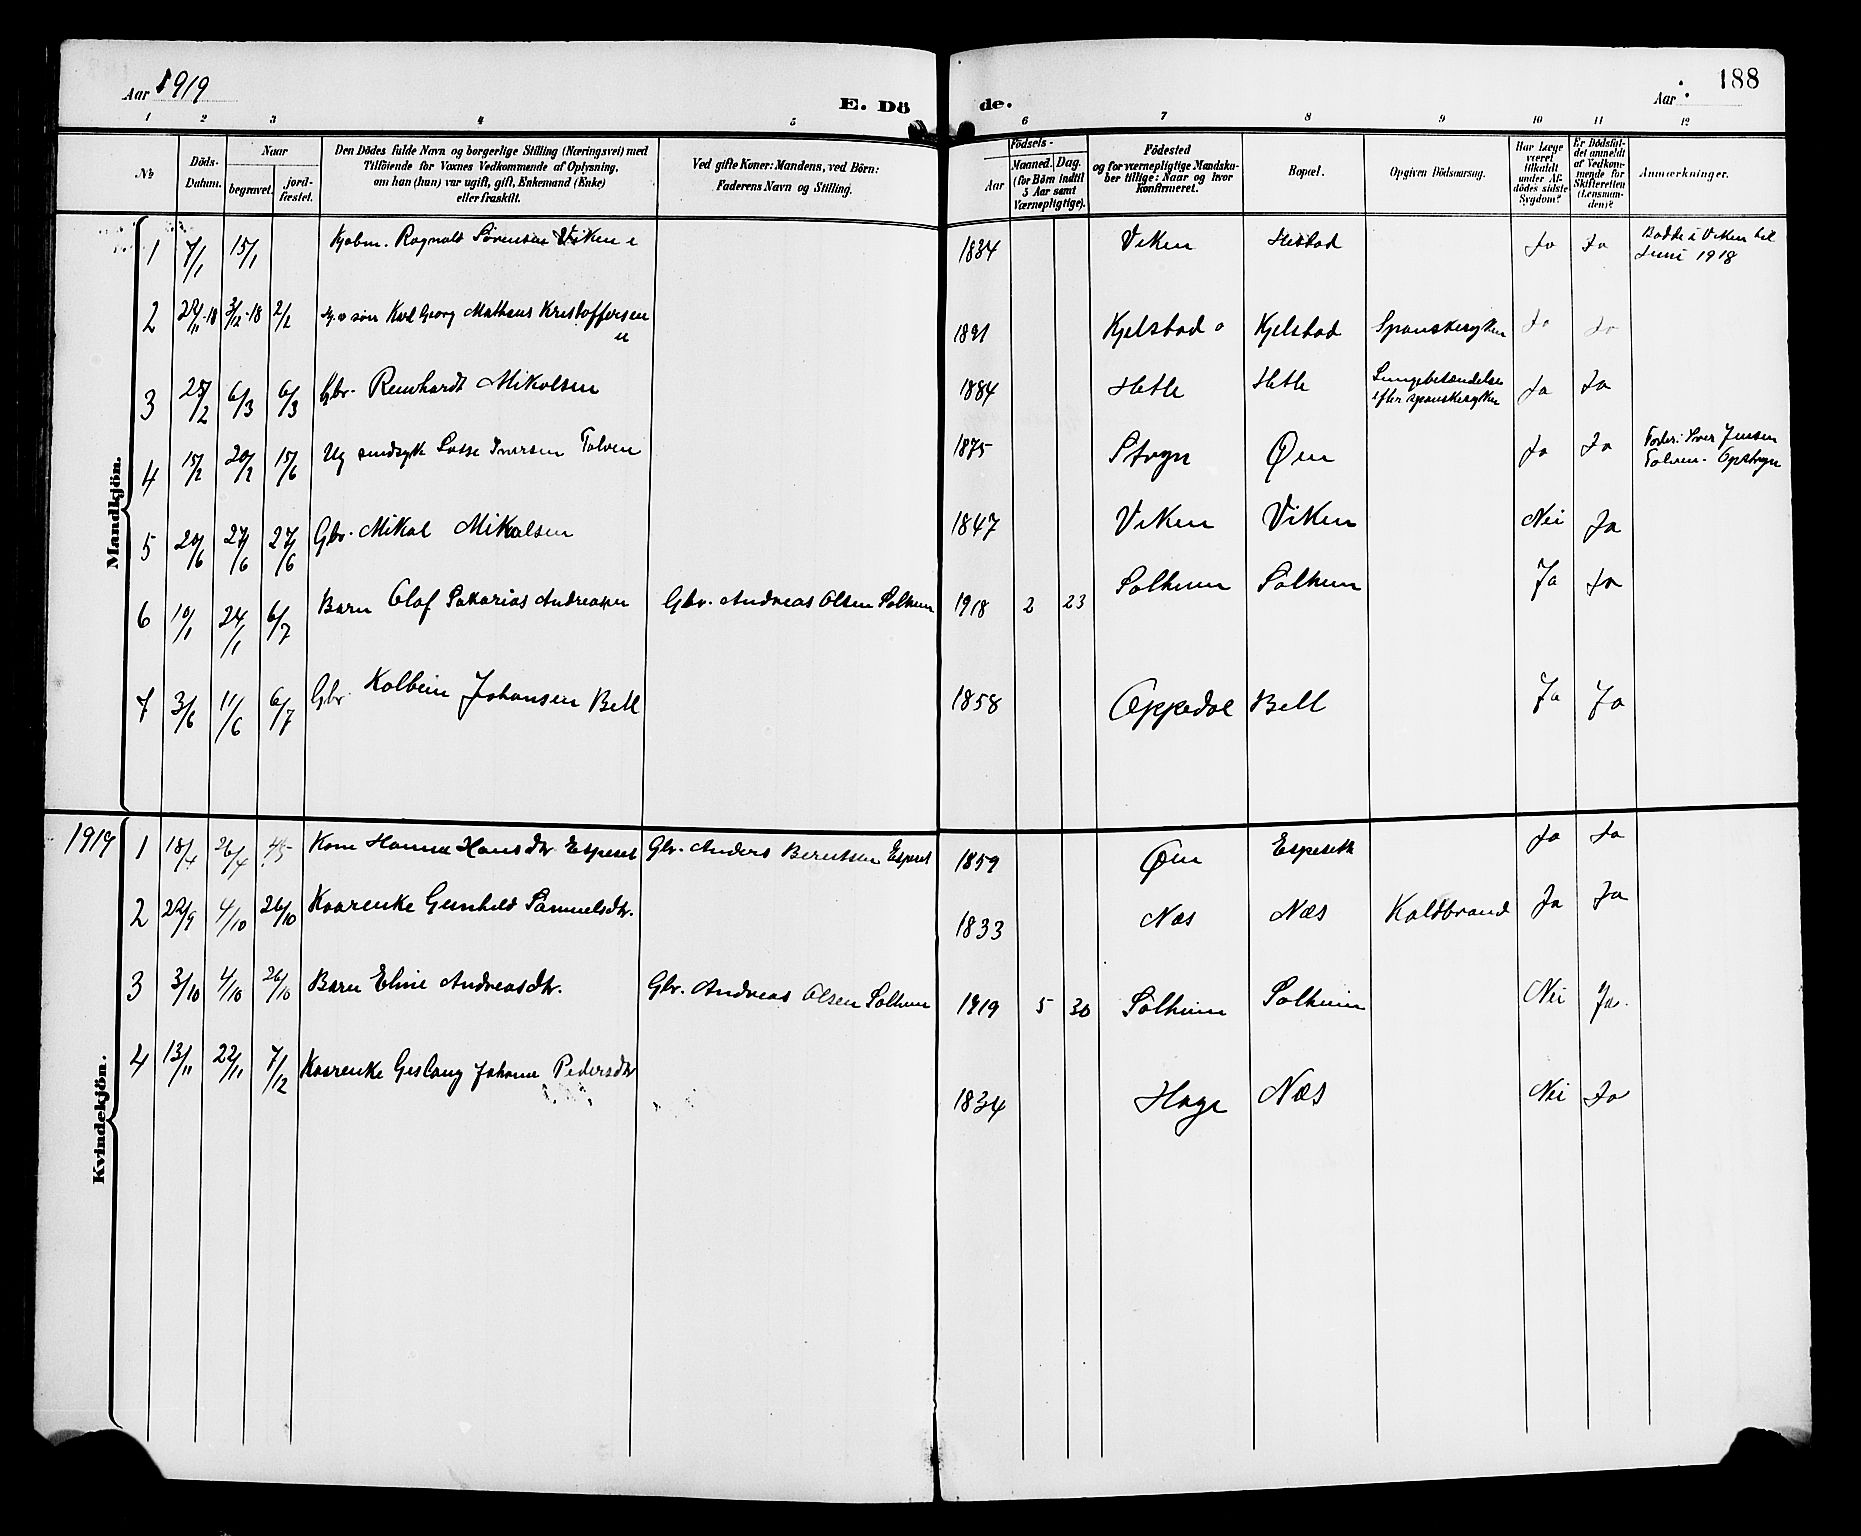 Aar 1919
E. Dö
de.
188
Aar
1 2 3 4 5 6 7 8 9 10 11 12
No
Döds-
Datum.
Naar
begravet.
jord-
fæstet.
Den Dödes fulde Navn og borgerlige Stilling (Næringsvei) med
Tilföiende for Voxnes Vedkommende af Oplysning,
om han (hun) var ugift, gift, Enkemand (Enke)
eller fraskilt.
Ved gifte Koner: Mandens, ved Börn:
Faderens Navn og Stilling.
Födsels-
Aar
Maaned. Dag.
(for Börn indtil
5 Aar samt
Værnepligtige).
Födested
og for værnepligtige Mandska-
ber tillige: Naar og hvor
Konfirmeret.
Bopæl.
Opgiven Dödsaarsag.
Har Læge
været
tilkaldt
under Af-
dödes sidste
Sygdom?
Er Dödsfal-
det anmeldt
af Vedkom-
mende for
Skifteretten
(Lensman-
den)?
Anmærkninger.
Mandkjön.
1 7/1 15/1 Kjøbm. Ragnald Sørensen Viken 1834 Viken Hestad Ja Ja Bodde i Viken til
Juni 1918
2 3/12-18 2/2 søn Karl Georg Mathæus Kristoffersen 1891 Kjelstad Kjelstad Spanskesyken Ja Ja
u
3 25/2 6/3 6/3 Gbr. Reinhardt Mikalsen 1884 Hetle Hetle Lungebetændelse
efter spanskesyken Ja Ja
4 15/2 20/2 15/6 Ug sindsyk Lasse Iversen Tolven 1875 Stryn Øen Ja Ja Fader: Iver Jensen
Tolven. Opstryn
5 20/6 27/6 27/6 Gbr. Mikal Mikalsen 1847 Viken Viken Nei Ja
6 10/1 24/1 6/7 Barn Olaf Sakarias Andreassen Gbr. Andreas Olsen Solheim 1918 2 23 Solheim Solheim Ja Ja
7 3/6 11/6 6/7 Gbr. Kolbein Johansen Bell 1858 Oppedal Bell Ja Ja
1919
Kvindekjön.
1 18/4 26/4 4/5 Kone Hanna Hansdtr Espeset Gbr. Anders Berentsen Espeset 1859 Øen Espeseth Ja Ja
2 22/9 4/10 26/10 Kaarenke Gunhild Samuelsdtr. 1833 Næs Næs Koldbrand Ja Ja
3 3/10 4/10 26/10 Barn Eline Andreasdtr. Gbr. Andreas Olsen Solheim 1919 5 30 Solheim Solheim Nei Ja.
4 13/11 22/11 7/12 Kaarenke Johanne Pedersdtr 1834 Hage Næs Nei Ja